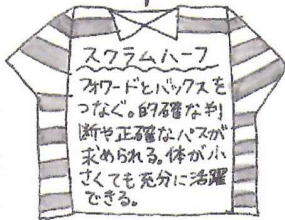 スクラムハーフ
フォワードとバックスを
つなぐ。的確な判
断や正確なパスが
求められる。体が小
さくても充分に活躍
できる。